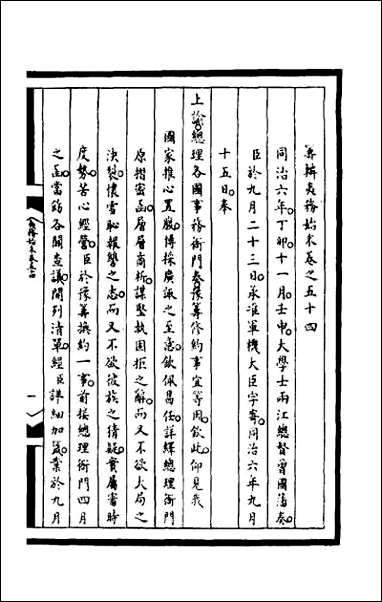 籌辦夷務始末卷之五十四
同治六年丁卯十一月壬申大學士兩江總督曾國藩奏
臣於九月二十三日承准軍機大臣字寄同治六年九月
十五日奉
上諭總理各國事務衙門奏豫籌修約事宜等因欽此仰見我
國家推心置腹博採廣諏之至意欽佩昌任詳繹總理衙門
原摺密函層層商析謀堅執固拒之辭而又不欲大局之
決裂懷雪恥報讐之志而又不欲彼族之猜疑實屬審時
度勢苦心經營臣於豫籌換約一事前接總理衙門四月
之函當飭各關查議開列清單經臣詳細加簽業於九月